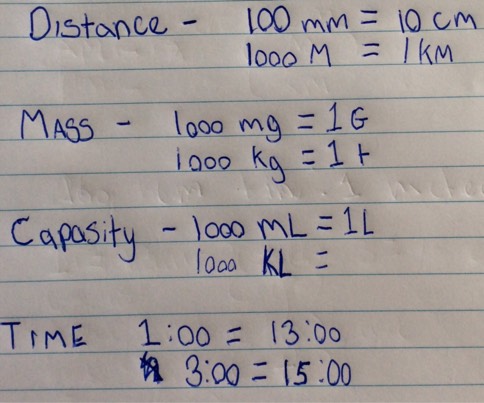 Distance - 100 mm = 10 cm
1000 M = 1 KM
MASS - 1000 mg = 1 G
1000 kg = 1 t
Capasity - 1000 mL = 1L
1000 KL =
TIME 1:00 = 13:00
3:00 = 15:00